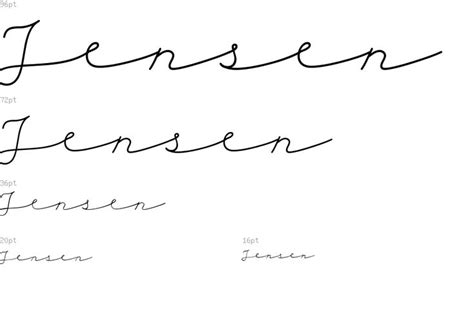 96pt
Jensen
72pt
Jensen
36pt
Jensen
20pt
16pt
Jensen
Jensen